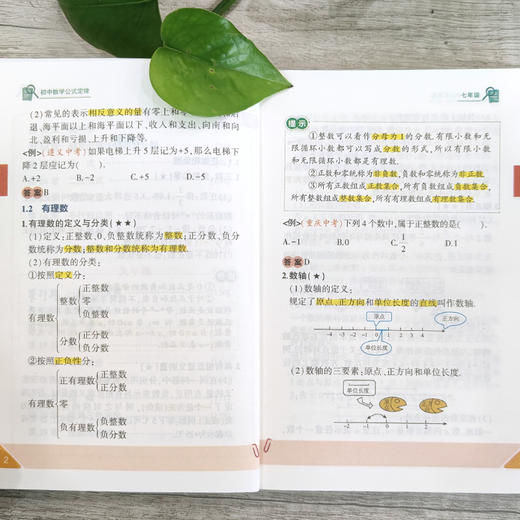 初中数学公式定律
(2)常见的表示相反意义的量有零上和零
退、海平面以上和海平面以下、收入和支出、向南和向
北、盈利和亏损、上升和下降等.
<例>(遵义中考)如果电梯上升5层记为+5,那么电梯下
降2层应记为( ).
A.+2 B.-2 C.+5 D.-5
答案B
1.2 有理数
1.有理数的定义与分类(★★)
(1)定义:正整数、0、负整数统称为整数;正分数、负分
数统称为分数;整数和分数统称为有理数.
(2)有理数的分类:
①按照定义分:
有理数
整数
正整数
零
负整数
分数
正分数
负分数
②按照正负性分:
有理数
正有理数
正整数
正分数
零
负有理数
负整数
负分数
2
七年级
提示
①整数可以看作分母为1的分数,有限小数和无
限循环小数都可以写成分数的形式,所以有限小数
和无限循环小数都是有理数.
②正数和零统称为非负数,负数和零统称为非正数.
③所有正数组成正数集合,所有负数组成负数集合,
所有整数组成整数集合,所有有理数组成有理数集合.
<例>(重庆中考)下列4个数中,属于正整数的是( ).
A.-1 B.0 C.1/2 D.1
答案D
2.数轴(★)
(1)数轴的定义:
规定了原点、正方向和单位长度的直线叫作数轴.
原点 正方向
-4 -3 -2 -1 0 1 2 3 4
单位长度
(2)数轴的三要素:原点、正方向和单位长度.
单位长度
-2 -1 0 1 2